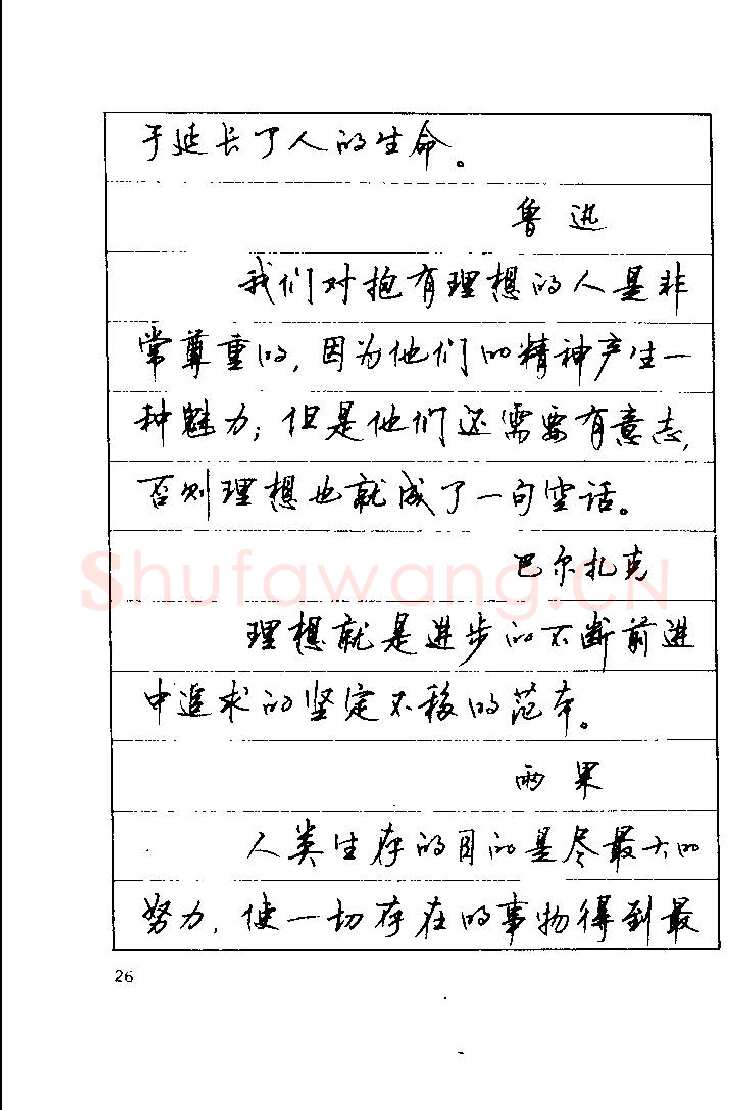 于延长了人的生命。
鲁迅
我们对抱有理想的人是非
常尊重的,因为他们的精神产生一
种魅力;但是他们还需要有意志,
否则理想也就成了一句空话。
巴尔扎克
Shufawang.CN
理想就是进步的不断前进
中追求的坚定不移的范本。
雨果
人类生存的目的是尽最大的
努力,使一切存在的事物得到最
26